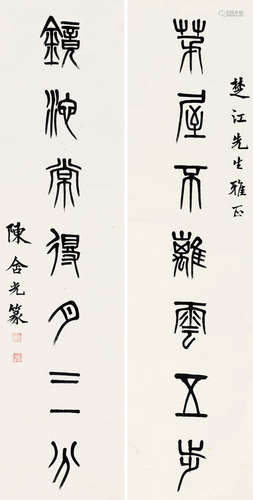 楚江先生雅正
茅屋不離雲五步
鏡池常得月三分
陳含光篆